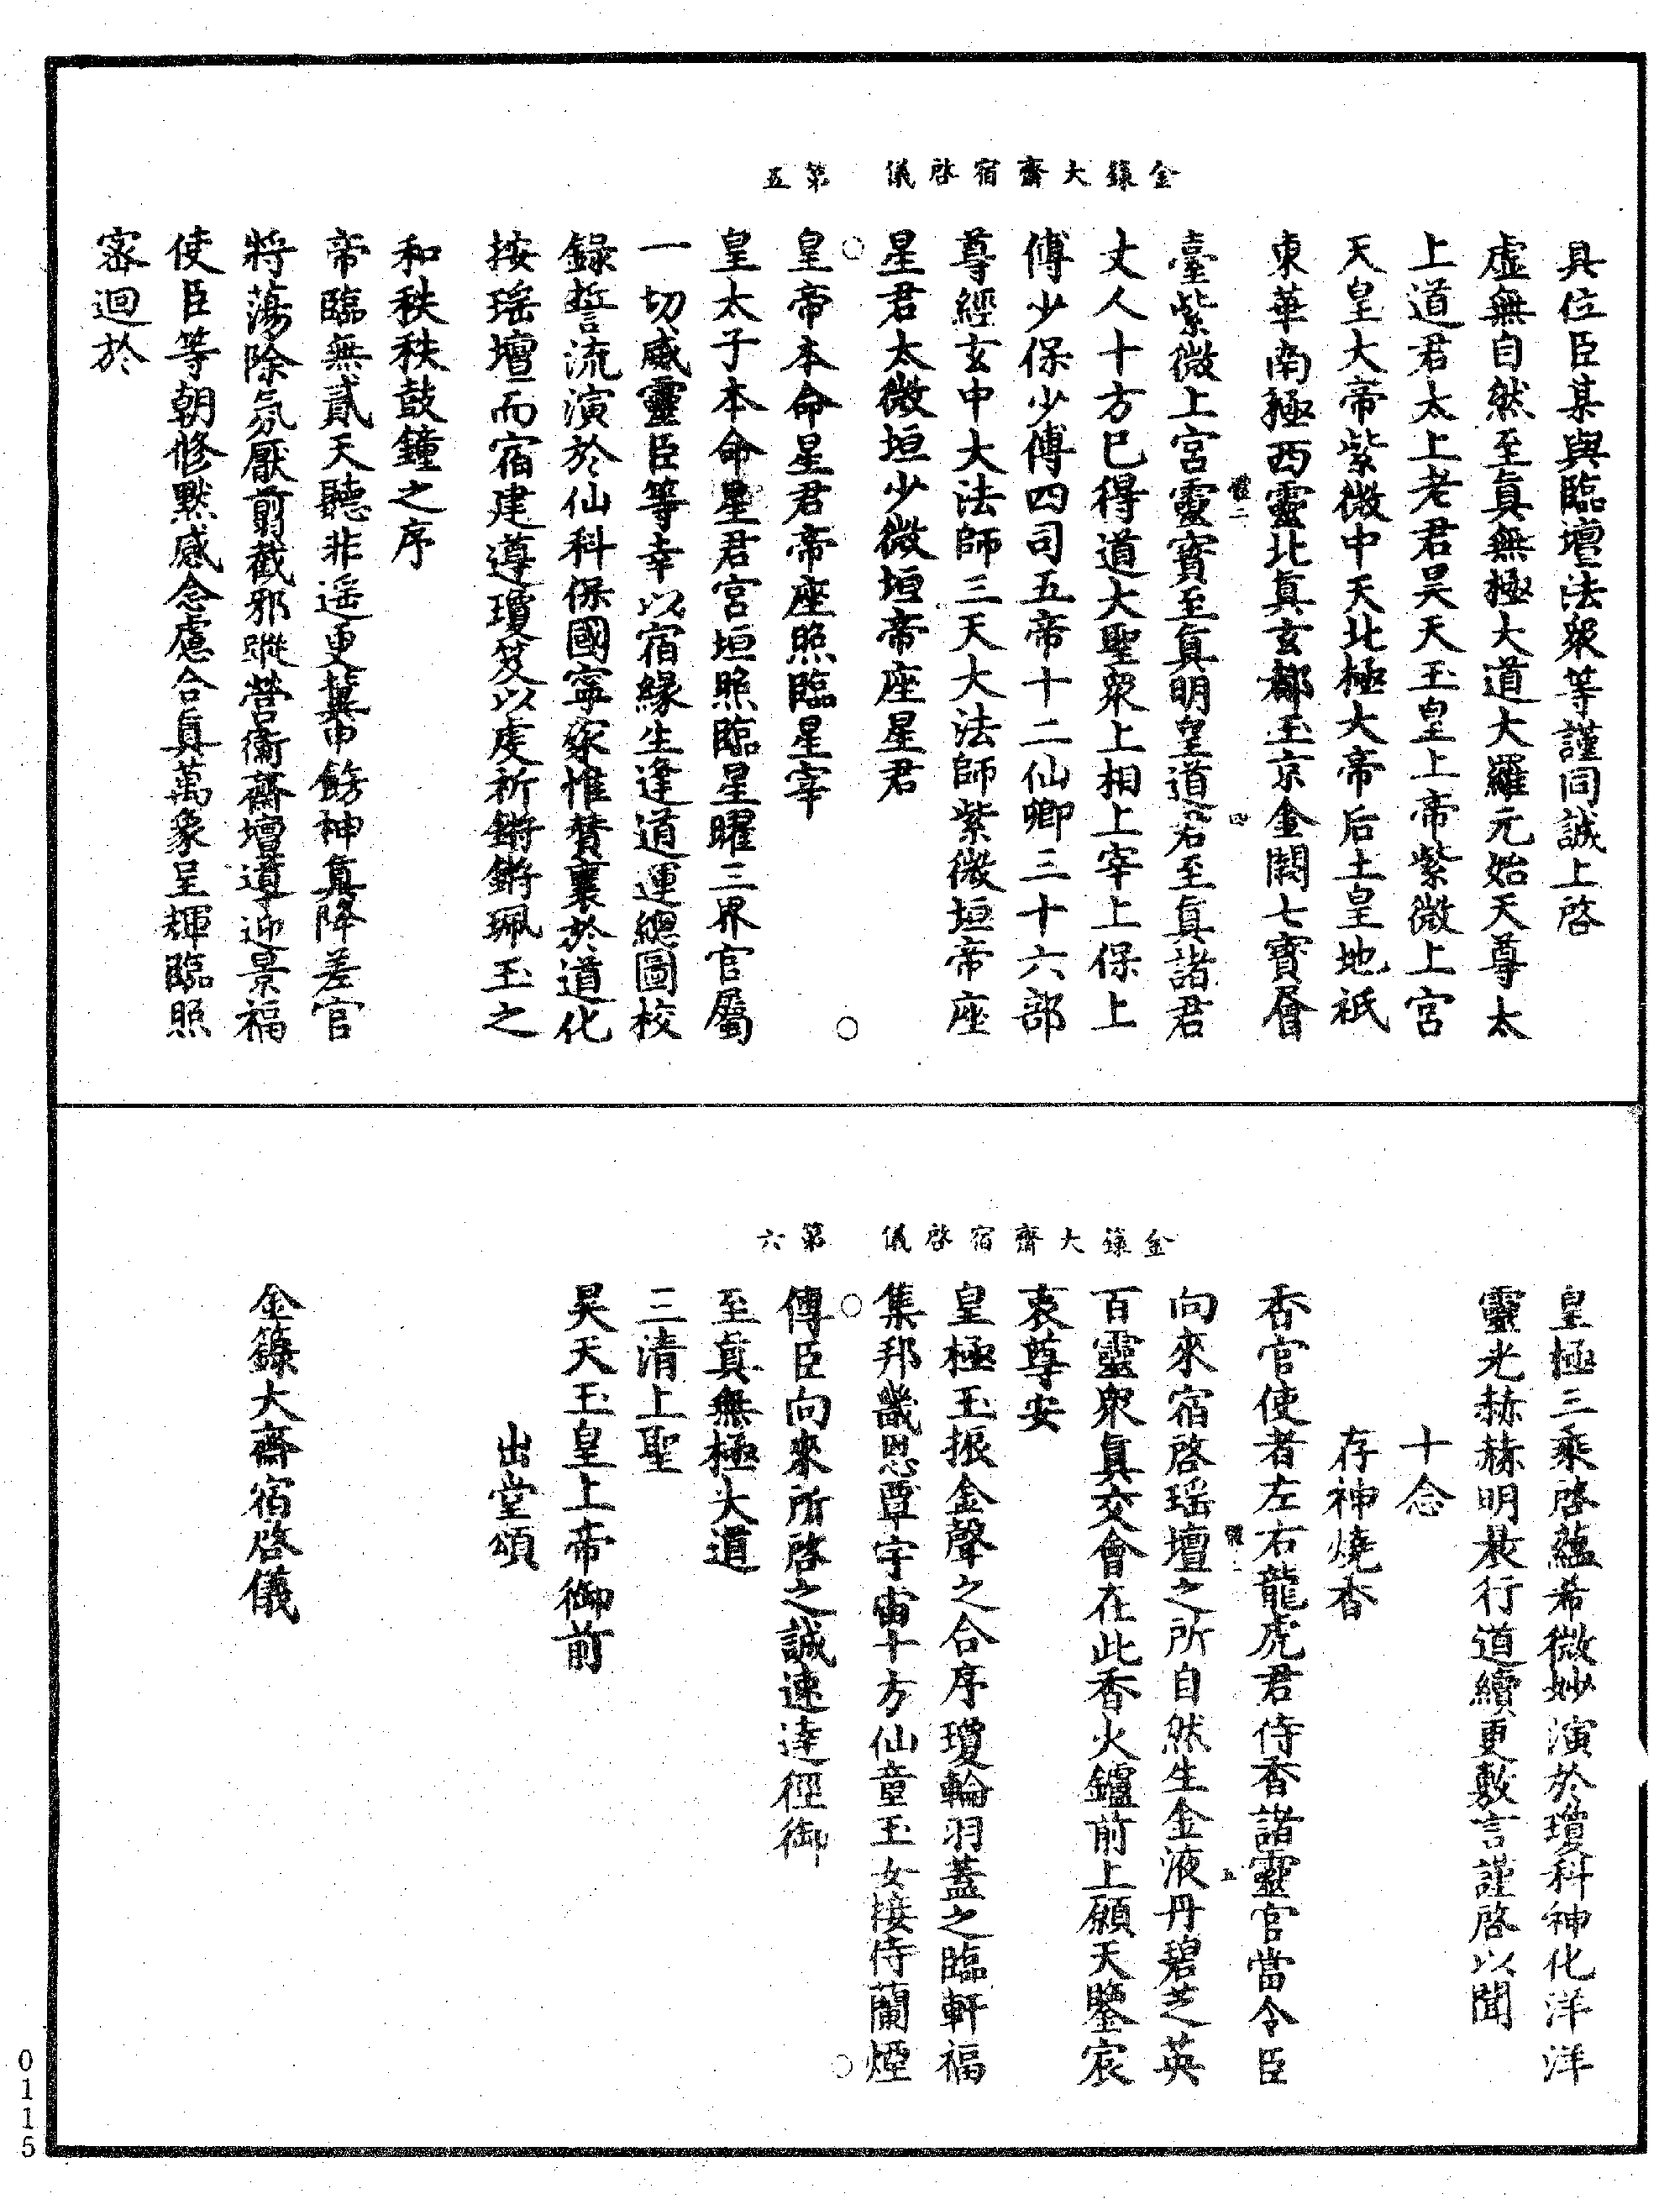 金籙大齋宿啓儀　第五
具位臣某與臨壇法衆等謹同誠上啓
虛無自然至真無極大道大羅元始天尊太
上道君太上老君昊天玉皇上帝紫微上宮
天皇大帝紫微中天北極大帝后土皇地祇
東華南極西靈北真玄都玉京金闕七寶層
臺紫微上宮靈寶至真明皇道君至真諸君
丈人十方已得道大聖衆上相上宰上保上
傅少保少傅四司五帝十二仙卿三十六部
尊經玄中大法師三天大法師紫微垣帝座
星君太微垣少微垣帝座星君
皇帝本命星君帝座照臨星宰
皇太子本命星君宮垣照臨星曜三界官屬
一切威靈臣等幸以宿緣生逢道運總圖校
錄誓流演於仙科保國寧家惟贊襄於道化
按瑤壇而宿建遵瓊笈以虔祈鏘鏘珮玉之
和秩秩鼓鐘之序
帝臨無貳天聽非遥更冀申飭神真降差官
將蕩除氛厭翦截邪蹤營衞齋壇導迎景福
使臣等朝修默感念慮合真萬象呈輝臨照
密迴於
金籙大齋宿啓儀　第六
皇極三乘啓蘊希微妙演於瓊科神化洋洋
靈光赫赫明長行道續更敷言謹啓以聞
十念
存神燒香
香官使者左右龍虎君侍香諸靈官當令臣
向來宿啓瑶壇之所自然生金液丹碧芝英
百靈衆真交會在此香火鑪前上願天鑒宸
衷尊安
皇極玉振金聲之合序瓊輪羽蓋之臨軒福
集邦畿恩覃宇宙十方仙童玉女接侍蘭煙
傳臣向來所啓之誠速達徑御
至真無極大道
三清上聖
昊天玉皇上帝御前
出堂頌
金籙大齋宿啓儀
0115